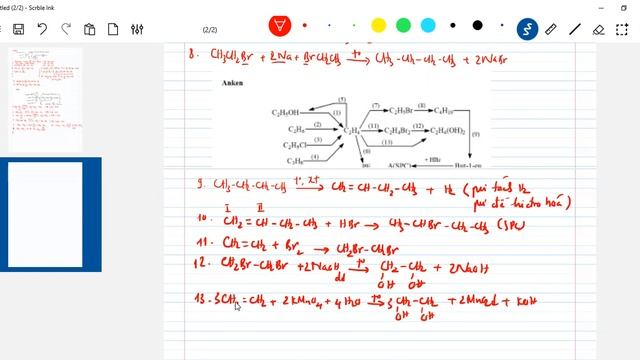 tled (2/2) - Scrble Ink
(2/2)
8. CH3CH2Br + 2Na + BrCH2CH3 —t°→ CH3-CH2-CH2-CH3 + 2NaBr
Anken
(5)
C2H5OH (1) (7) C2H5Br (8) C4H10
C2H6 (2) C2H4 (11) C2H4Br2 (12) C2H4(OH)2 (9)
C2H5Cl (3) (13)
C3H8 (4) (6) +HBr
A(SPC) But-1-en
9. CH3-CH2-CH2-CH3 —t°, xt→ CH2=CH-CH2-CH3 + H2 (pứ tách H2
pứ đề hiđro hoá)
I II
10. CH2=CH-CH2-CH3 + HBr → CH3-CHBr-CH2-CH3 (SPC)
11. CH2=CH2 + Br2 → CH2Br-CH2Br
12. CH2Br-CH2Br + 2NaOH —t°→ CH2-CH2 + 2NaOH
dd OH OH
13. 3CH2=CH2 + 2KMnO4 + 4H2O —t°→ 3CH2-CH2 + 2MnO2↓ + KOH
OH OH